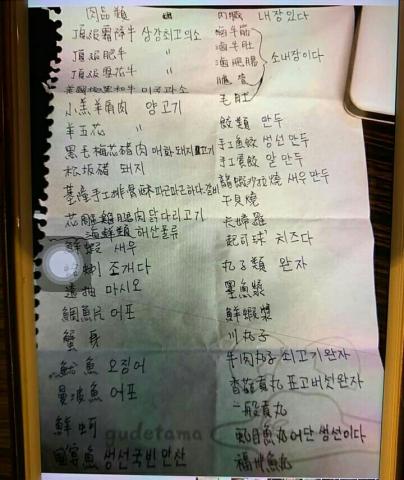 肉品類
頂級霜降牛 상강최고의소
頂級肥牛 〃
頂級雪花牛 〃
美國極黑和牛 미국과소
小羔羊肩肉 양고기
羊五花 〃
黑毛梅花豬肉 매화돼지고기
松坂豬 돼지
基隆手工排骨酥
花雕雞腿肉 닭다리고기
海鮮類 해산물류
鮮蝦 새우
蛤蜊 조개다
透抽 마시오
鯛魚片 어포
蟹身
魚 오징어
曼波魚 어포
鮮蚵
魚 생선국빈만찬
內臟 내장있다
滷牛筋
滷牛肚
滷肥腸
脆管
소내장이다
毛肚
餃類 만두
手工魚餃 생선만두
手工蛋餃 알만두
龍蝦沙拉燒 새우만두
干貝燒
夫婦羅
起司球 치즈다
丸子類 완자
墨魚漿
鮮蝦漿
川丸子
牛肉丸子 쇠고기완자
香菇貢丸 표고버섯완자
一般貢丸
虱目魚丸 어단생선이다
福州魚丸
gudetama